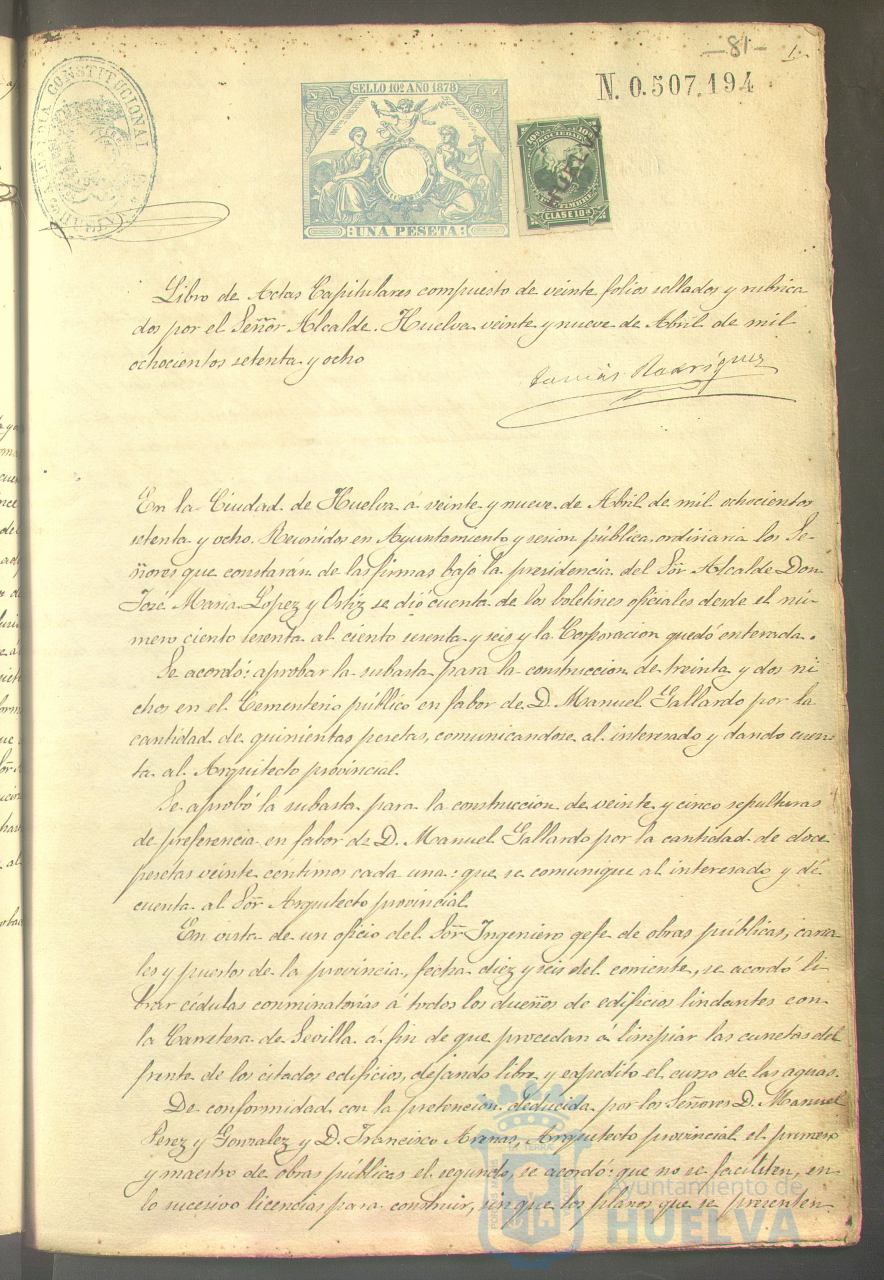 -81-
1.
ALCALDIA CONSTITUCIONAL
SELLO 10º AÑO 1878
UNA PESETA
N. 0.507,194
10ª 10ª
SOCIEDAD
TIMBRE
CLASE 10ª
HUELVA
Libro de Actas Capitulares compuesto de veinte folios sellados y rubrica
dos por el Señor Alcalde. Huelva veinte y nueve de Abril de mil
ochocientos setenta y ocho
Tomás Rodriguez
En la Ciudad de Huelva á veinte y nueve de Abril de mil ochocientos
setenta y ocho. Reunidos en Ayuntamiento y sesion pública ordinaria los Se-
ñores que constarán de las firmas bajo la presidencia del Sor Alcalde Don
José Maria Lopez y Ortiz se dió cuenta de los boletines oficiales desde el nú-
mero ciento sesenta al ciento sesenta y seis y la Corporacion quedó enterada.
Se acordó: aprobar la subasta para la construccion de treinta y dos ni
chos en el Cementerio público en fabor de D. Manuel Gallardo por la
cantidad de quinientas pesetas, comunicandose al interesado y dando cuen-
ta al Arquitecto provincial.
Se aprobó la subasta para la construccion de veinte y cinco sepulturas
de preferencia en fabor de D. Manuel Gallardo por la cantidad de doce
pesetas veinte centimos cada una: que se comunique al interesado y dé
cuenta al Sor Arquitecto provincial.
En vista de un oficio del Sor Ingeniero gefe de obras públicas, cana
les y puertos de la provincia, fecha diez y seis del corriente, se acordó li
brar cédulas conminatorias á todos los dueños de edificios lindantes con
la Carretera de Sevilla á fin de que procedan á limpiar las cunetas del
frente de los citados edificios, dejando libre y expedito el curso de las aguas.
De conformidad con la pretencion deducida por los Señores D. Manuel
Perez y Gonzalez y D. Francisco Arenas, Arquitecto provincial el primero
y maestro de obras públicas el segundo, se acordó: que no se faciliten, en
lo sucesivo licencias para construir, sin que los planos que se presenten
Ayuntamiento de
HUELVA